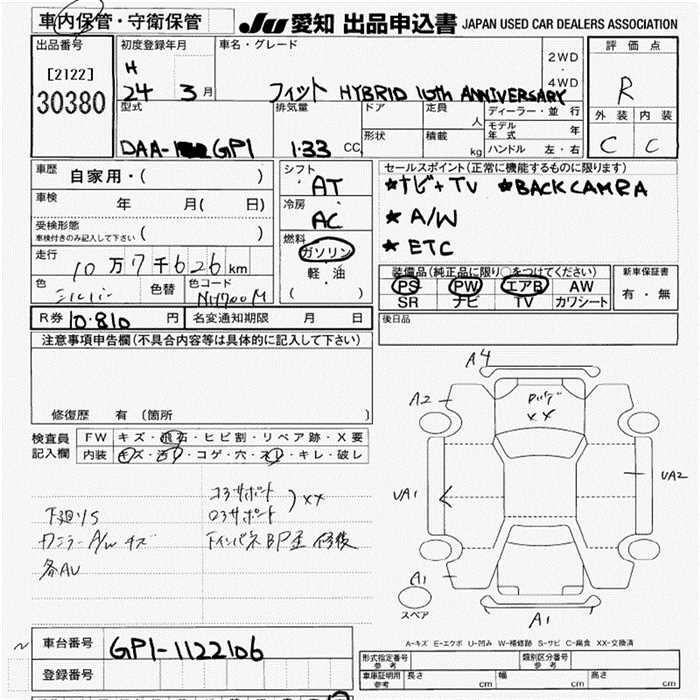 車内保管・守衛保管
JU 愛知 出品申込書 JAPAN USED CAR DEALERS ASSOCIATION
出品番号
[2122]
30380
初度登録年月
H
24 3月
車名・グレード
フィット HYBRID 10th ANNIVERSARY
2WD
・
4WD
評価点
R
外装 内装
C C
型式
DAA- GP1
排気量
1.33 CC
ドア
定員
人
形状
積載
kg
ディーラー・並行
モデル年式 年
ハンドル 左・右
車歴
自家用・( )
車検
年 月( 日)
受検形態
車検付きのみ記入して下さい ( )
走行
10万7千626km
色
シルバー
色替
色コード
NH700M
シフト
AT
冷房
AC
燃料
ガソリン
軽・油
( )
セールスポイント(正常に機能するものに限ります)
★ナビ+TV ★BACK CAMRA
★A/W
★ETC
装備品(純正品に限り〇をつけてください)
PS PW エアB AW
SR ナビ TV カワシート
新車保証書
有・無
R券 10.810 円
名変通知期限 月 日
後日品
注意事項申告欄(不具合内容等は具体的に記入して下さい)
修復歴 有 (箇所 )
検査員記入欄
FW キズ・飛石・ヒビ割・リペア跡・X要
内装 キズ・汚れ・コゲ・穴・スレ・キレ・破レ
コアサポート
ロアサポート
) XX
下廻りS
A/W キズ
各AU
BP歪 修後
A4
A2
XX
UA1
UA2
A1
スペア
A1
A-キズ E-エクボ U-凹み W-補修跡 S-サビ C-腐食 XX-交換済
車台番号
GP1-1122106
登録番号
形式指定番号
参考
類別区分番号
参考
車庫証明用
参考
長さ cm
幅 cm
高さ cm